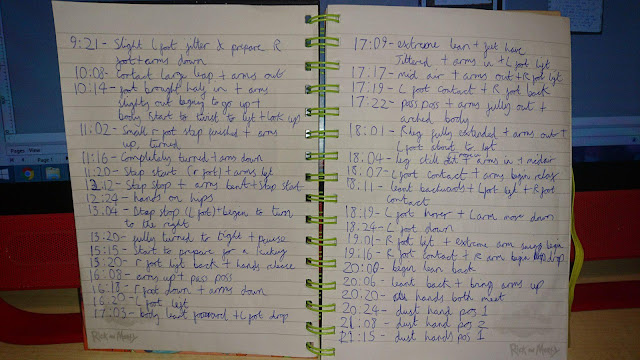 9:21 - Slight L foot jitter & prepare R
foot + arms down
10:08 - contact large leap + arms out
10:14 - foot brought half in + arms
slightly out begins to go up +
body start to twist to lft + look up
11:02 - Small r foot step finished + arms
up, turned
11:16 - Completely turned + arm down
11:20 - Step start (r foot) + arms
12:12 - Step stop + arms bent + step start
12:24 - hands on hips
13:04 - Step stop (L foot) + begin to turn
to the right
13:20 - fully turned to right + pause
15:15 - Start to prepare for a
15:20 - r foot lift back + hands release
16:08 - arms up + pass pos
16:18 - r foot down + arms down
16:20 - L foot left
17:03 - body leant forward + L foot drop
Rick and Morty
17:09 - extreme lean + feet have
Jittered + arms in + L foot lft
17:17 - mid air + arms out + R foot lft
17:19 - L foot contact + R foot back
17:22 - pass pos + arms fully out +
arched body
18:01 - R leg fully extended + arms out +
L foot about to lft
18:04 - leg still out + arms in + midair
18:07 - L foot contact + arms begin relax
18:11 - leant backwards + L foot lft + R foot
contact
18:19 - L foot hover + L arm move down
18:24 - L foot down
19:01 - R foot lft + extreme arm swing begin
19:16 - R foot contact + R arm begin drop
20:00 - begin lean back
20:06 - leant back + bring arms up
20:20 - hands both meet
20:24 - dust hand pos 1
21:08 - dust hand pos 2
21:15 - dust hands pos 1
Rick and Morty